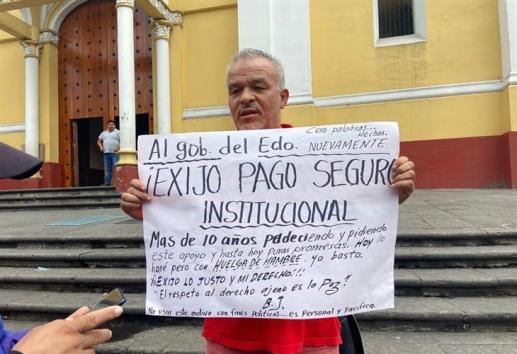 Cero palabras... Hechos.
Al gob. del Edo. NUEVAMENTE.
¡EXIJO PAGO SEGURO
INSTITUCIONAL
Mas de 10 años padeciendo y pidiendo
este apoyo y hasta hoy puras promesas. Hoy lo
haré pero con HUELGA DE HAMBRE. ya basta.
Yo EXIJO LO JUSTO Y MI DERECHO!!!
"El respeto al derecho ajeno es la Paz"
B.J.
No usar este motivo con fines politicos...es Personal y Pacifica.